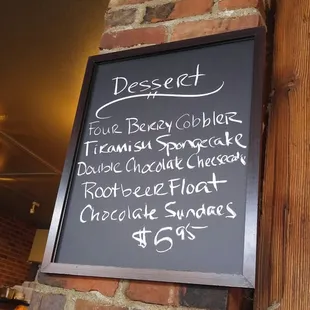 Dessert
Four Berry Cobbler
Tiramisu Spongecake
Double Chocolate Cheesecake
Rootbeer Float
Chocolate Sundaes
$6.95